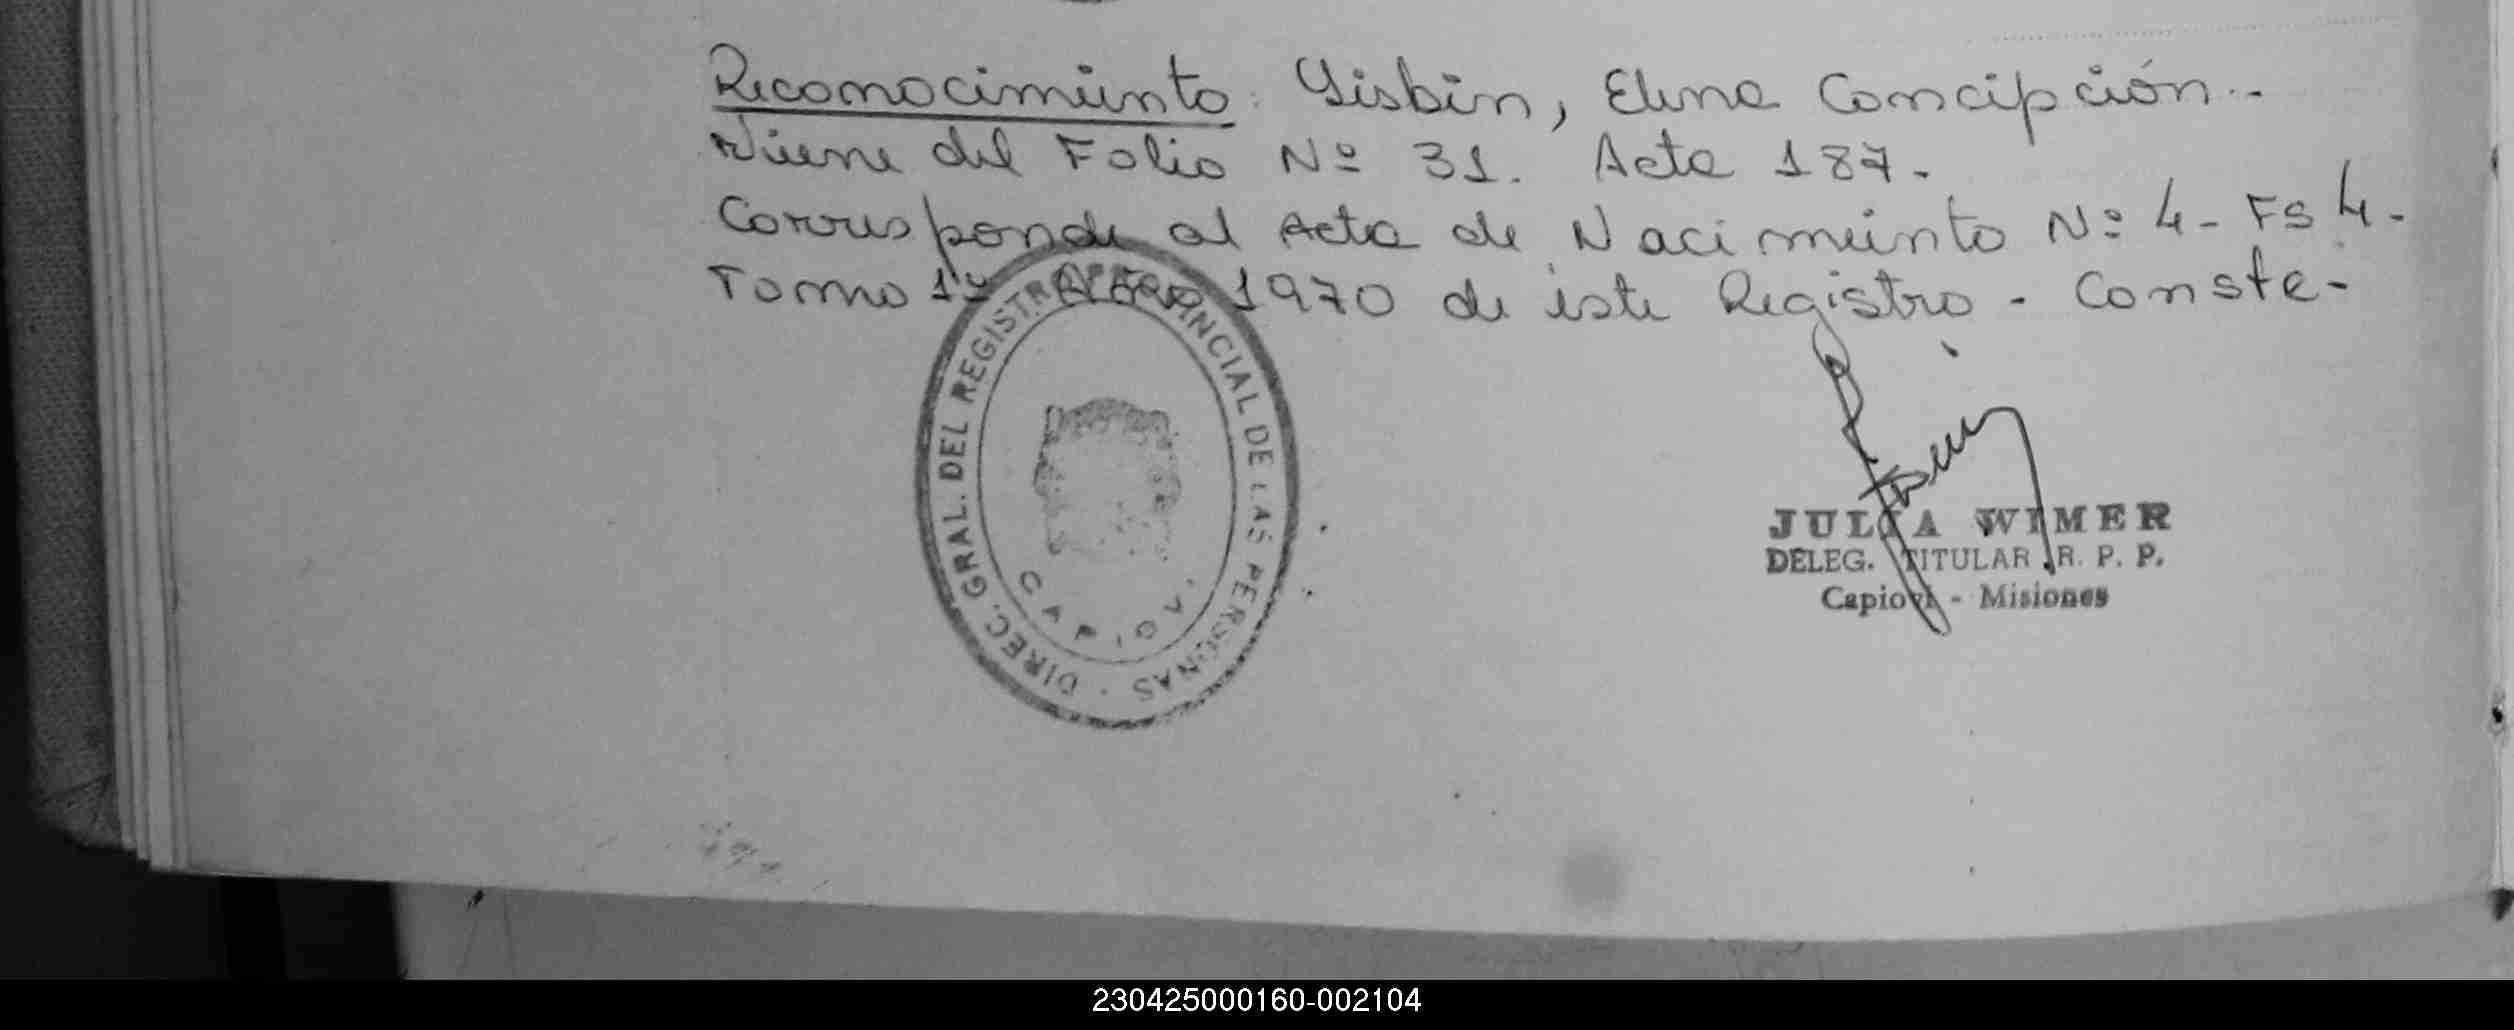 Reconocimiento: Gisbin, Elena Concepción.-
Viene del Folio Nº 31. Acta 187.
Corresponde al Acta de Nacimiento Nº 4- Fs 4-
Tomo 1º Año 1970 de este Registro - Conste-
DIREC. GRAL. DEL REGISTRO PROVINCIAL DE LAS PERSONAS
CAPIOVI
JULIA WIMER
DELEG. TITULAR R. P. P.
Capioví - Misiones
230425000160-002104